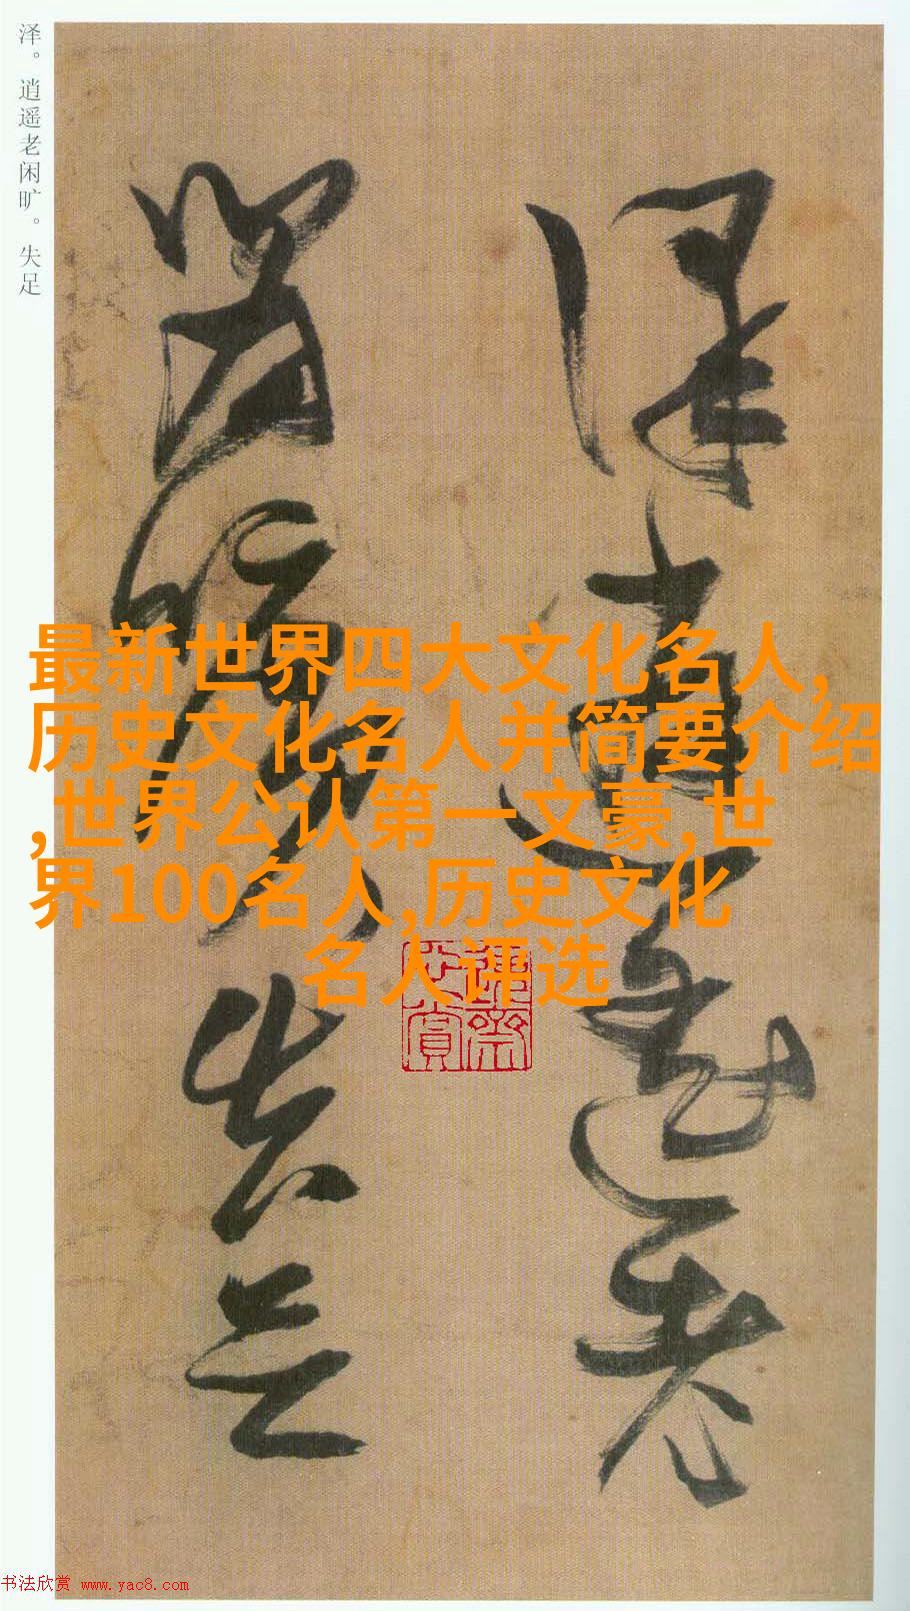 泽。逍遥老闲旷。失足
泽逍遥老
闲旷失足
最新世界四大文化名人,
历史文化名人并简要介绍
,世界公认第一文豪,世
界100名人,历史文化
名人评选
书法欣赏 www.yac8.com